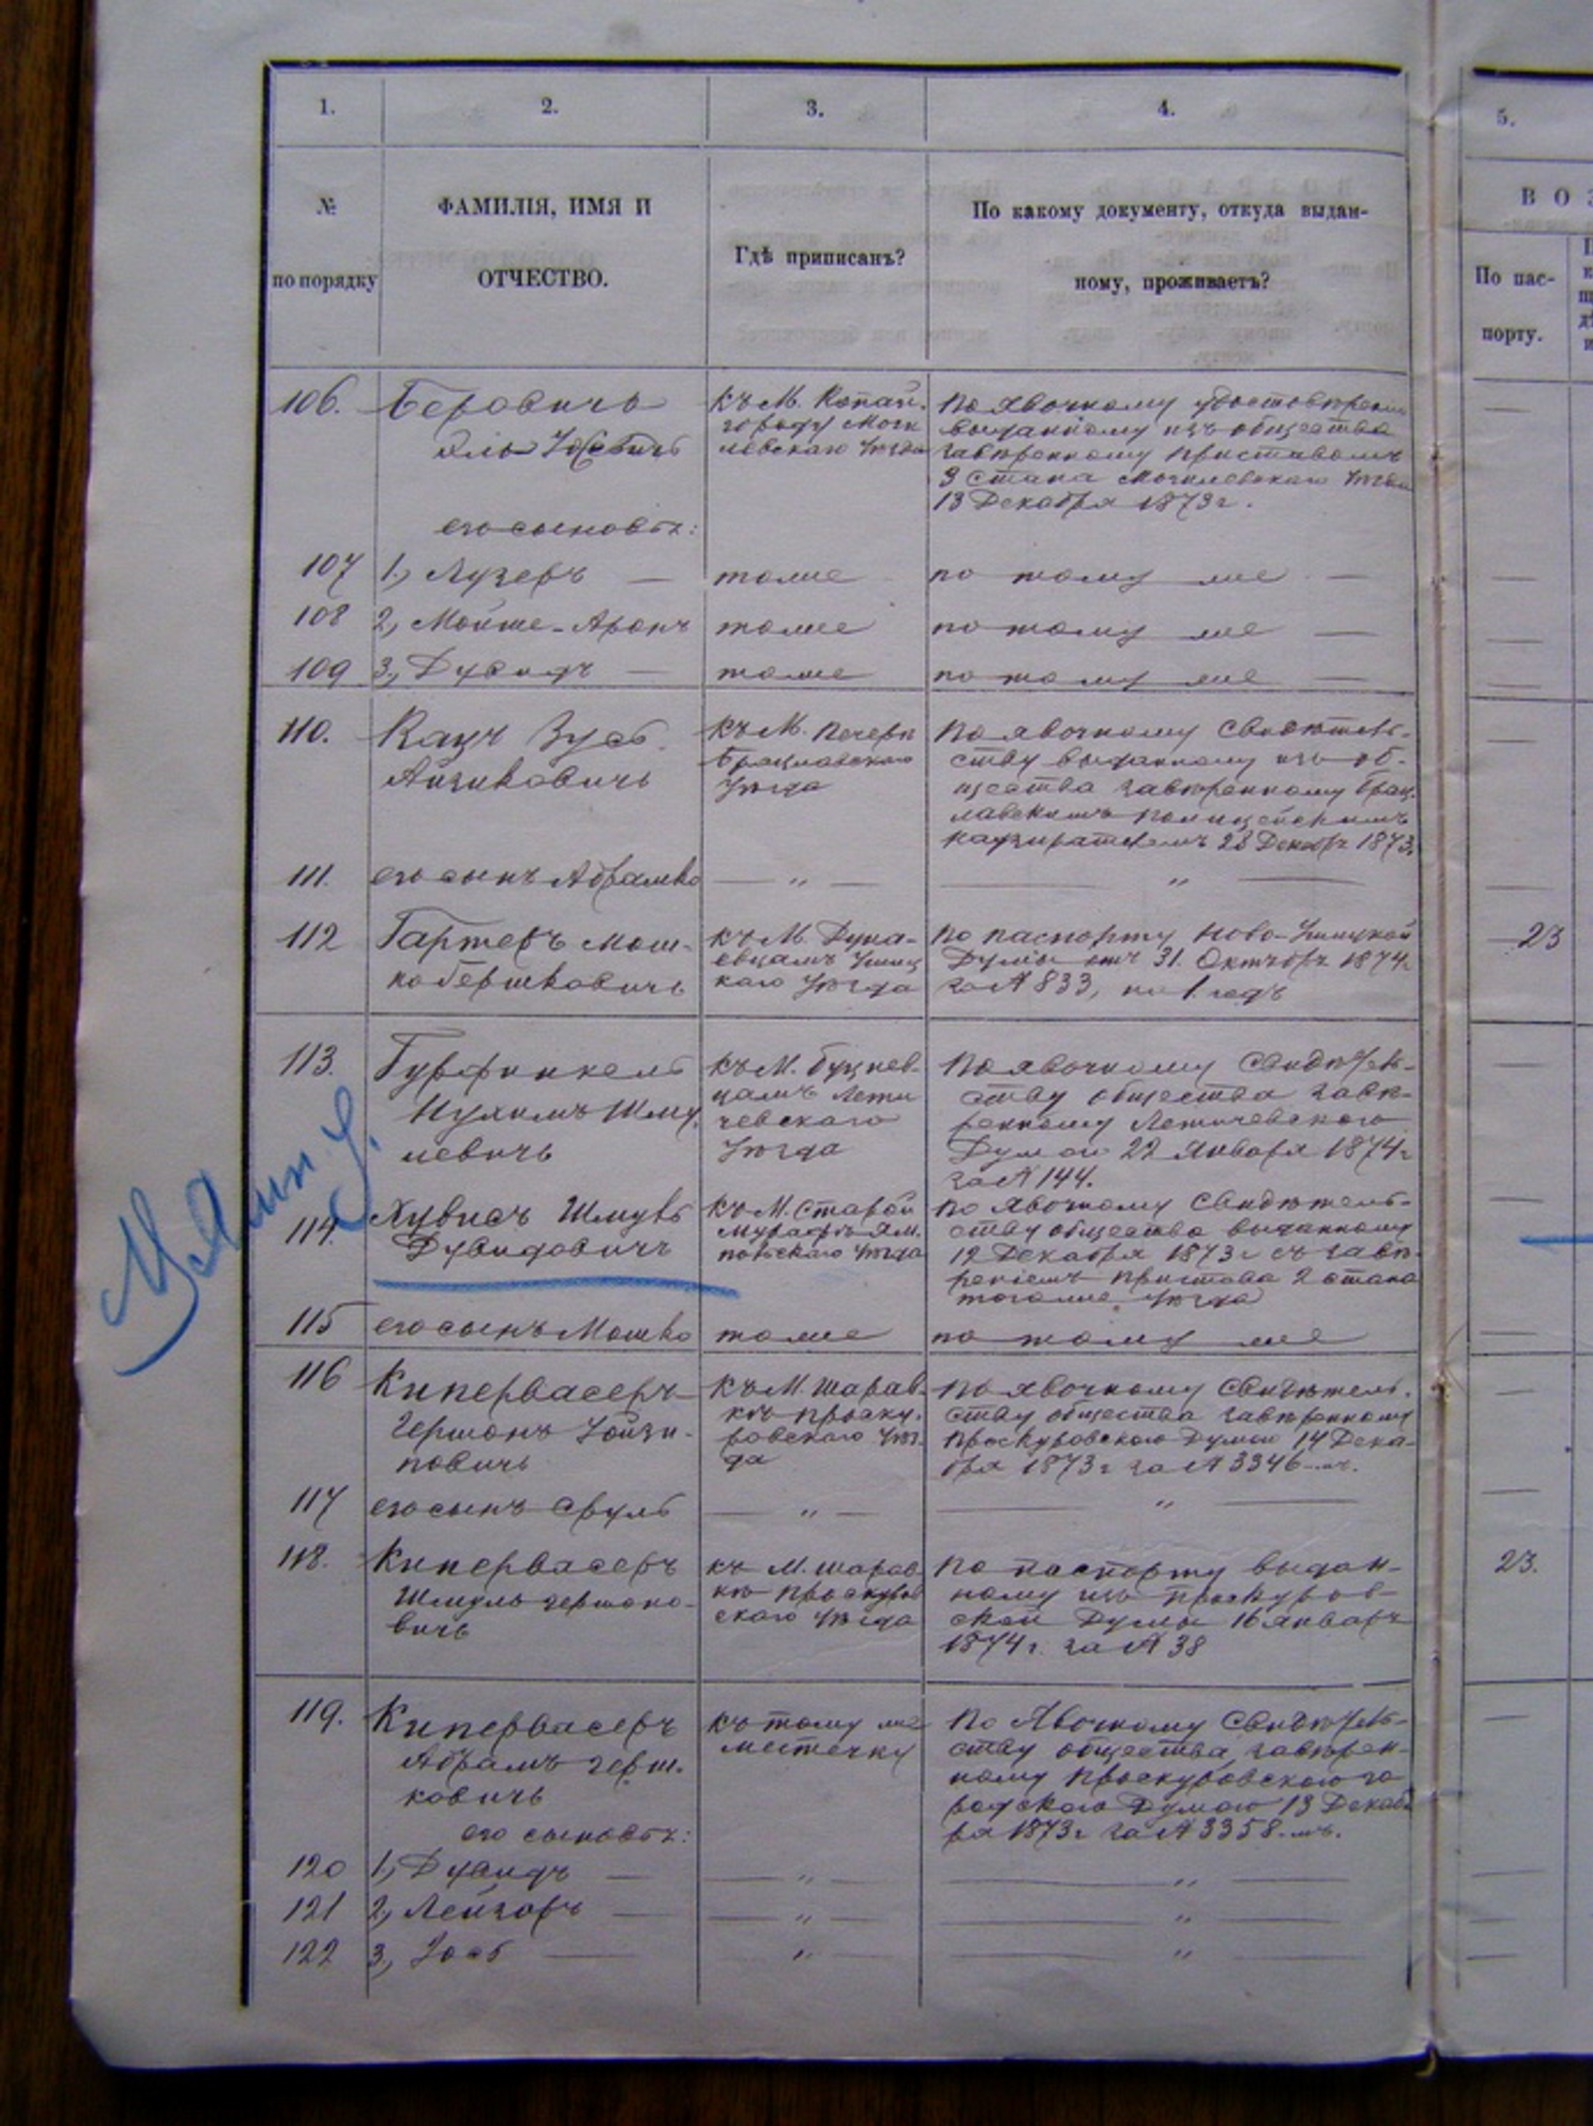 1.
2.
3.
4.
5.
№
по порядку
ФАМИЛІЯ, ИМЯ И
ОТЧЕСТВО.
Гдѣ приписанъ?
По какому документу, откуда выдан-
ному, проживаетъ?
В О З
По пас-
порту.
106. Беровичъ
его сыновья:
къ М. Копай-
городу Моги
левскаго Уѣзда
По явочному удостовѣрен
выданному изъ общества
завѣренному приставомъ
3 стана Могилевскаго Уѣзда
13 Декабря 1873 г.
107 1., Лузеръ — тоже по тому же —
108 2., Мойше-Аронъ тоже по тому же —
109 3., Дувидъ — тоже по тому же —
110. Кацъ Зусь
Айзиковичъ
къ М. Печерѣ
Брацлавскаго
Уѣзда
По явочному свидѣтель-
ству выданному изъ об-
щества завѣренному Брац-
лавскимъ полицейскимъ
надзирателемъ 28 Декабр 1873.
111. его сынъ Абрамко — „ — — „ —
112 Гартеръ Мош-
ко Бершковичъ
къ М. Дуна-
евцамъ Ушиц
каго Уѣзда
По паспорту Ново-Ушицкой
Думы отъ 31. Октябр 1874 г
за № 833, на 1. годъ
23
113. Гурфинкель
Нухимъ Шму-
левичъ
къ М. Буцнев-
цамъ Лети
чевскаго
Уѣзда
По явочному свидѣтель-
ству общества завѣ-
ренному Летичевскою
Думою 22 Января 1874 г
за № 144.
114. Шмуль
Дувидовичъ
къ М. Старой
Мурафѣ Ям-
польскаго Уѣзда
По явочному свидѣтель-
ству общества выданному
12 Декабря 1873 г съ завѣ-
реніемъ пристава 2 стана
тогоже Уѣзда
115 его сынъ Мошко тоже по тому же
116 Кипервасеръ
Гершонъ
повичъ
къ М. Шарав-
кѣ Проску-
ровскаго Уѣз-
да
По явочному свидѣтель-
ству общества завѣренному
Проскуровскою Думою 14 Дека-
бря 1873 г за № 3346-мъ.
117 его сынъ Сруль — „ — — „ —
118. Кипервасеръ
Шмуль Гершоно-
вичъ
къ М. Шарав
кѣ Проскуров
скаго Уѣзда
По паспорту выдан-
ному изъ Проскуров-
ской Думы 16 Январъ
1874 г. за № 38
23.
119. Кипервасеръ
Абрамъ Герш-
ковичъ
его сыновья:
къ тому же
местечку
По явочному свидѣтель-
ству общества, завѣрен-
ному Проскуровскою го
родскою Думою 13 Декаб
ря 1873 г за № 3358-мъ.
120 1., Дувидъ — — „ — — „ —
121 2., Лейзоръ — — „ — — „ —
122 3., Іось — „ — — „ —